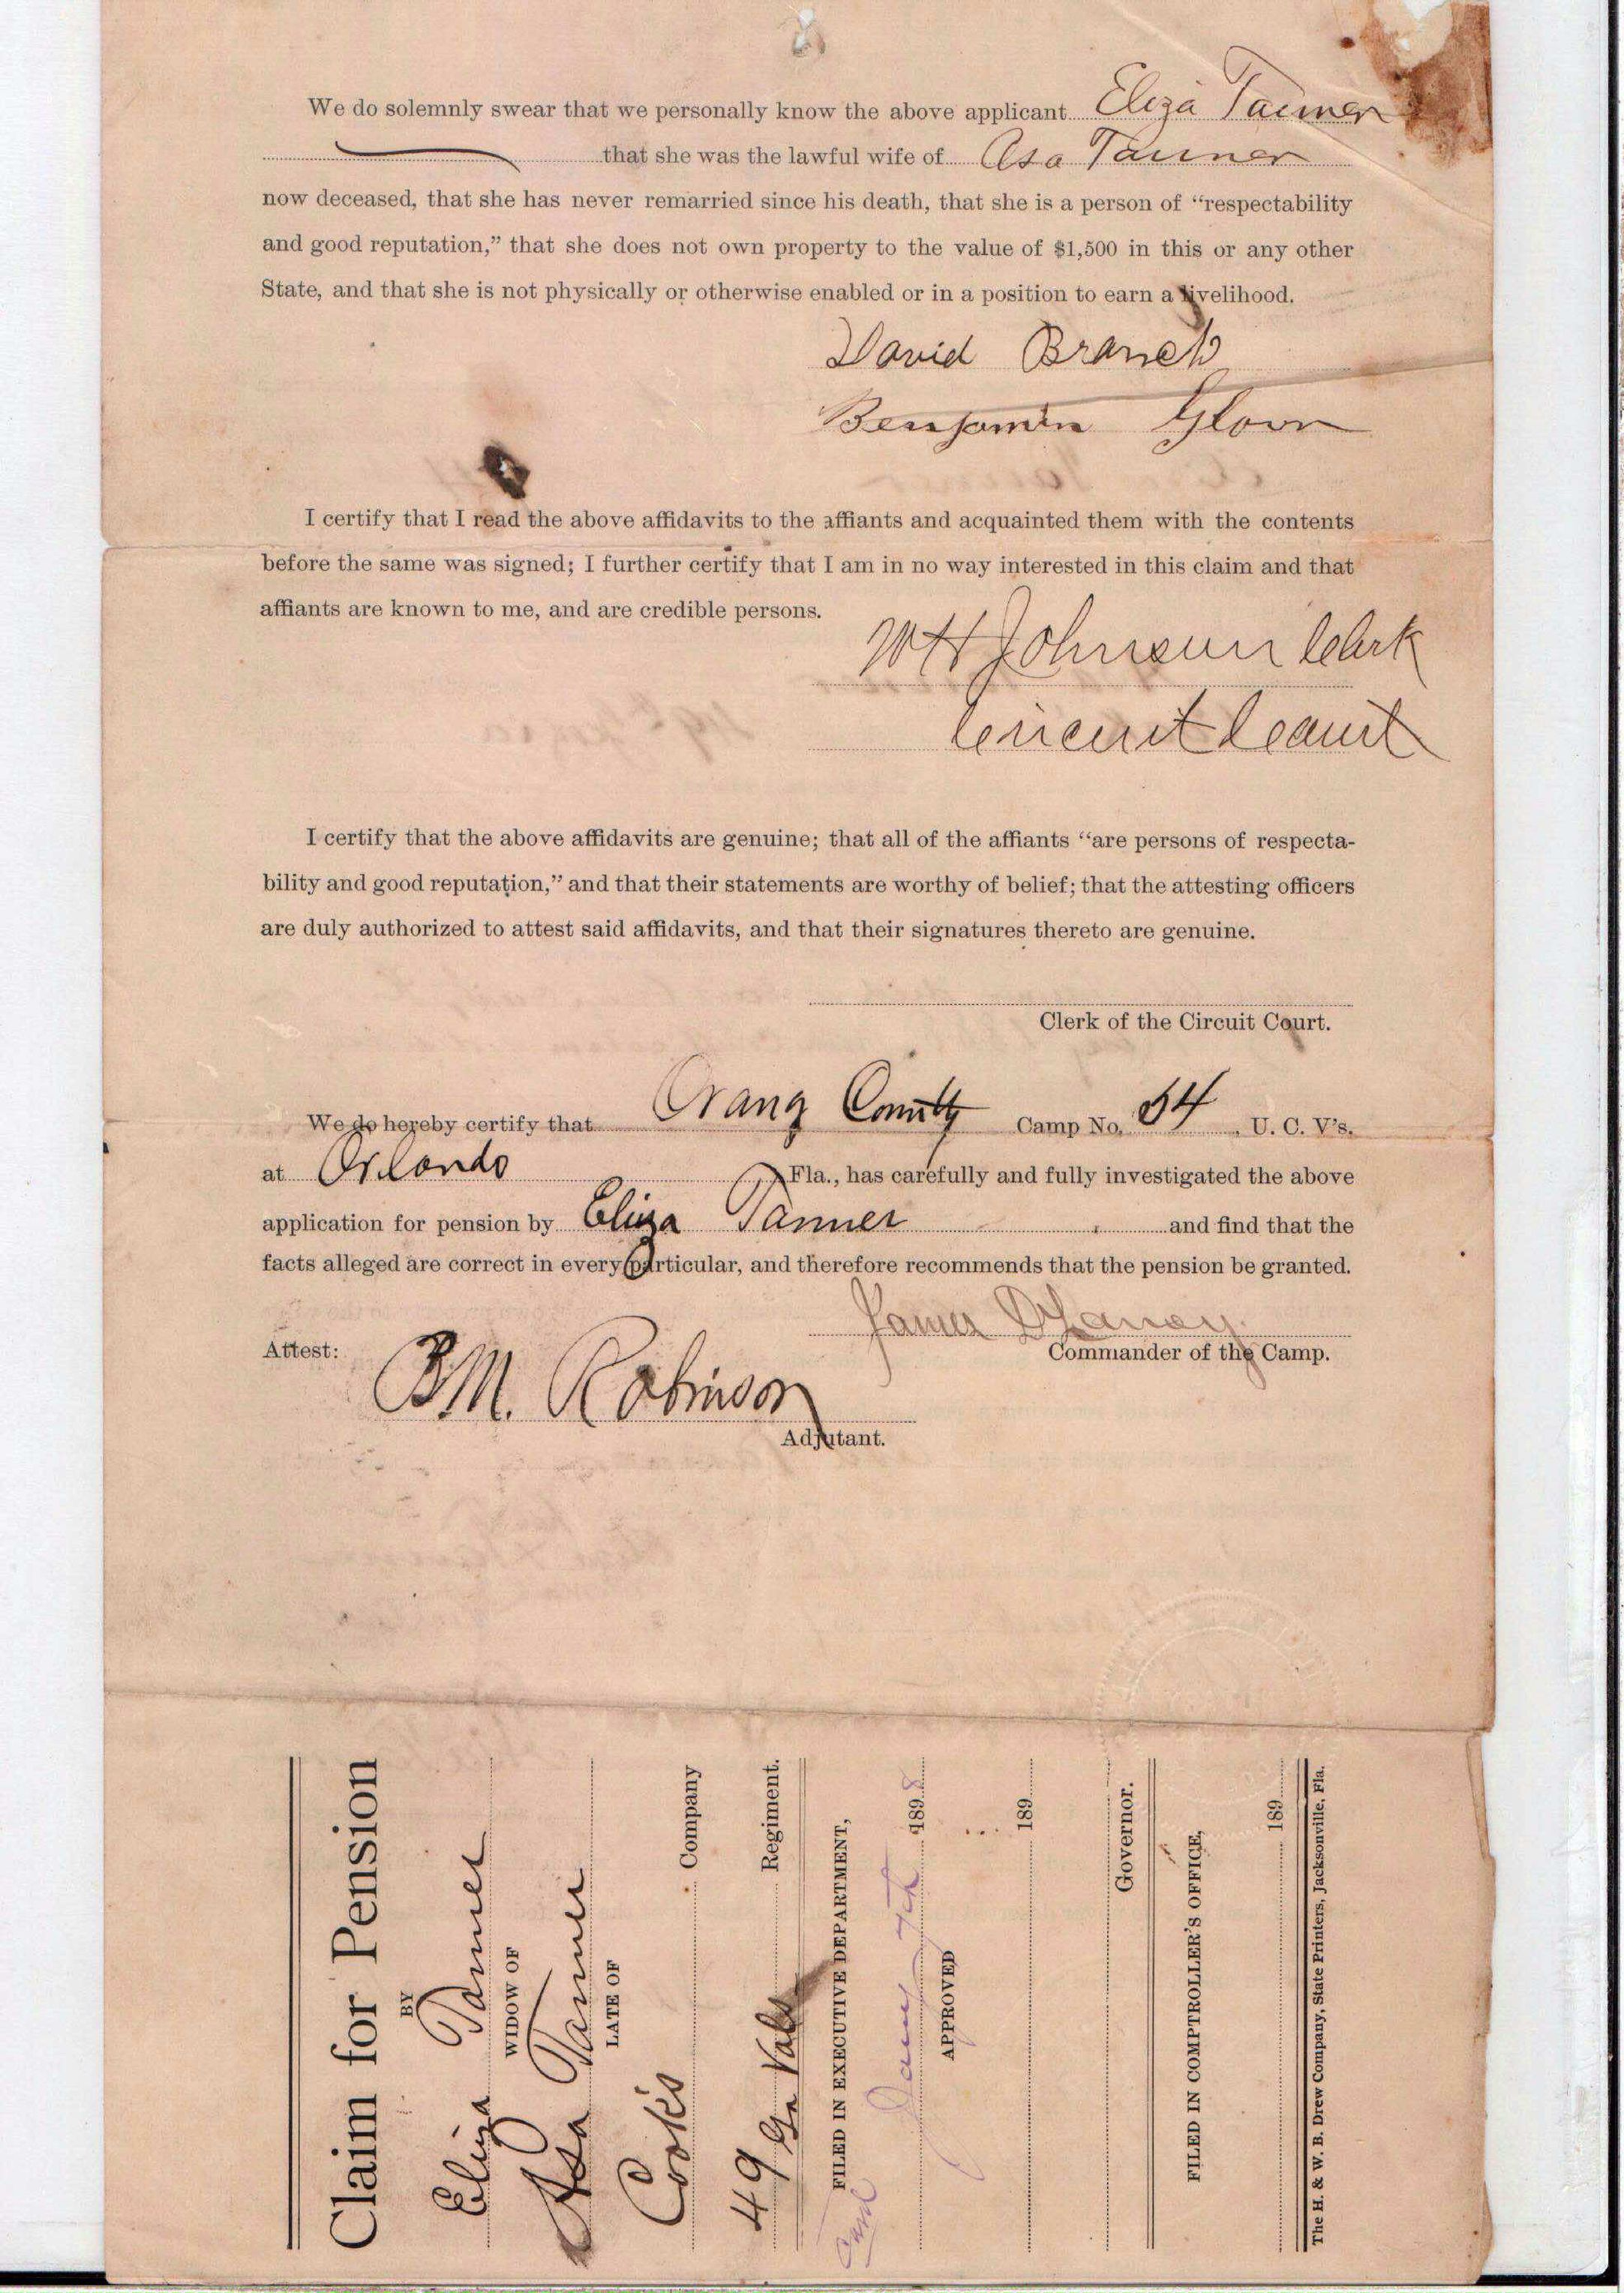 We do solemnly swear that we personally know the above applicant Eliza Tanner
that she was the lawful wife of Asa Tanner
now deceased, that she has never remarried since his death, that she is a person of “respectability
and good reputation,” that she does not own property to the value of $1,500 in this or any other
State, and that she is not physically or otherwise enabled or in a position to earn a livelihood.
David Branch
Benjamin
I certify that I read the above affidavits to the affiants and acquainted them with the contents
before the same was signed; I further certify that I am in no way interested in this claim and that
affiants are known to me, and are credible persons.
W H Johnson Clerk
Circuit Court
I certify that the above affidavits are genuine; that all of the affiants “are persons of respecta-
bility and good reputation,” and that their statements are worthy of belief; that the attesting officers
are duly authorized to attest said affidavits, and that their signatures thereto are genuine.
Clerk of the Circuit Court.
We do hereby certify that Orang County Camp No. 54, U. C. V's.
at Orlando Fla., has carefully and fully investigated the above
application for pension by Eliza Tanner and find that the
facts alleged are correct in every particular, and therefore recommends that the pension be granted.
James
Commander of the Camp.
Attest:
B M. Robinson
Adjutant.
Claim for Pension
BY
Eliza Tanner
WIDOW OF
Asa Tanner
LATE OF
Cook's Company
49 Ga Vols Regiment.
FILED IN EXECUTIVE DEPARTMENT,
Jany 7th 1898
APPROVED
189
Governor.
FILED IN COMPTROLLER'S OFFICE,
189
The H. & W. B. Drew Company, State Printers, Jacksonville, Fla.